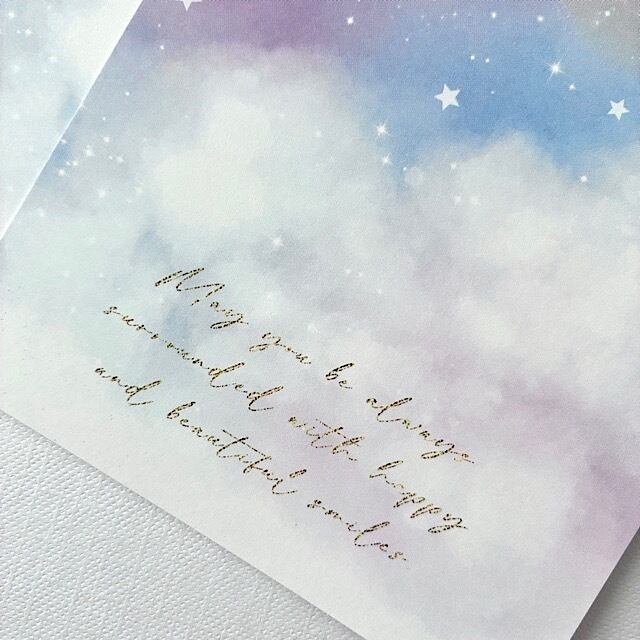 May you be always
surrounded with happy
and beautiful smiles